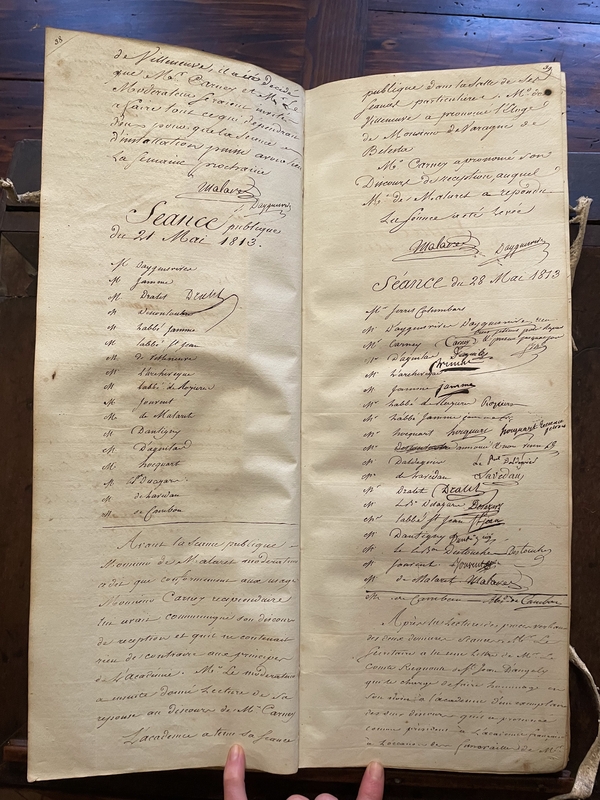 38
de Villeneuve, il a été décidé
que Mr Carney et Mr Le
Modérateur seraient invités
a faire tout ce qui dépendrait
d'eux pour que la séance
d'installation puisse avoir lieu
La semaine prochaine
Malaret
Dayguesvives
Séance publique
du 21 Mai 1813.
Mr Dayguesvives
Mr Jamme
Mr Dralet Dralet
Mr Descouloubre
Mr Labbé Jamme
Mr labbé St Jean
Mr de Villeneuve
Mr L'archevêque
Mr labbé de Rozieres
Mr Jouvent
Mr de Malaret
Mr Dantigny
Mr D'aguilar
Mr hocquart
Mr
Mr de Savidan
Mr de Cambon
Avant la séance publique
Monsieur de Malaret modérateur
a dit que conformément aux usages
Monsieur Carney récipiendaire
lui avait communiqué son discours
de réception et qu'il ne contenait
rien de contraire aux principes
de L'académie. Mr Le modérateur
a ensuite donné Lecture de sa
réponse au discours de Mr Carney
L'académie a tenu sa séance
39
publique dans la Salle de ses
séances particulières. Mr de
Villeneuve a prononcé l'éloge
de Monsieur de Varagne de
Belesta
Mr Carney a prononcé son
Discours de réception, auquel
Mr de Malaret a répondu
La séance a été levée
Malaret
Dayguesvives
Séance du 28 Mai 1813
Mr
Mr Dayguesvives Dayguesvives
Mr Carney
Mr D'aguilar D'aguilar
Mr L'archevêque
Mr Jamme Jamme
Mr labbé de Rozieres Rozieres
Mr labbé Jamme
Mr hocquart hocquart hocquart
Mr
Mr Daldeguier
Mr de Savidan Savidan
Mr Dralet Dralet
Mr
Mr labbé St Jean St Jean
Mr Dantigny
Mr
Mr Jouvent Jouvent
Mr de Malaret Malaret
Mr de Cambon de Cambon
Après la lecture des procès verbaux
des deux dernières séances Mr Le
Secrétaire a lu une lettre de Mr Le
Comte Regnaud de St Jean D'angely
qui le charge de faire hommage en
son nom à l'académie d'un exemplaire
des discours qu'il a prononcé
comme président à L'académie française
à L'occasion des funérailles de Mr